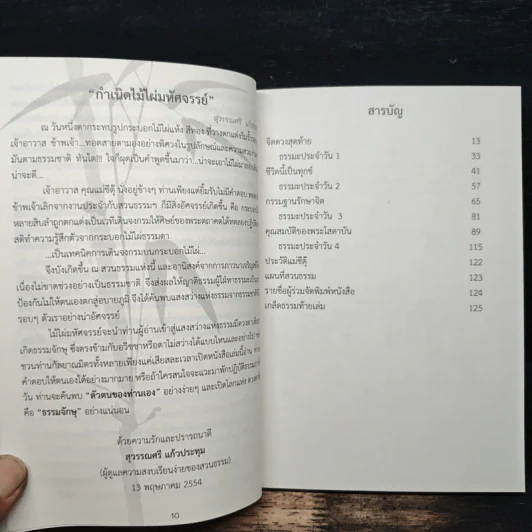 “กำเนิดไม้ไผ่มหัศจรรย์”
สุวรรณศรี แก้วประทุม
ณ วันหนึ่งตากระทบรูปกระบอกไม้ไผ่แห้ง สีทอง
เจ้าอาวาส ข้าพเจ้า...ทอดสายตามองอย่างพิศวงในรูปลักษณ์และความสวยงาม
มันตามธรรมชาติ ทันใด!! ใจก็ผุดเป็นคำพูดขึ้นมาว่า...น่าจะเอาไม้ไผ่
น่าจะดี...
เจ้าอาวาส คุณแม่ชีตุ้ นั่งอยู่ข้างๆ ท่านเพียงแค่ยิ้มรับไม่มีคำตอบ
เข้าพเจ้าเลิกจากงานประจำกับสวนธรรมฯ ก็มีสิ่งอัศจรรย์เกิดขึ้น คือ
หลายสิบลำถูกตกแต่งเป็นเวทีเดินจงกรมให้ศิษย์ของพระตถาคตได้ทดลองปฏิบัติ
สติทำความรู้สึกตัวจากกระบอกไม้ไผ่ธรรมดา
...เป็นเทคนิคการเดินจงกรมบนกระบอกไม้ไผ่...
จึงบังเกิดขึ้น ณ สวนธรรมแห่งนี้ และอานิสงค์จากการภาวนาเจริญ
เนื่องไม่ขาดช่วงอย่างเป็นธรรมชาติ จึงส่งผลให้ญาติธรรมผู้ใฝ่หาธรรมะ
ป้องกันไม่ให้ตนเองตกสู่อบายภูมิ จึงได้ค้นพบแสงสว่างแห่งธรรมจากธรรมชาติ
รอบๆ ตัวเราอย่างน่าอัศจรรย์
ไม้ไผ่มหัศจรรย์จะนำท่านผู้อ่านเข้าสู่แสงสว่างแห่งธรรมมีดวงตา
เกิดธรรมจักษุ ซึ่งตรงข้ามกับอวิชชาหรือตาไม่สว่างได้แบบไหนและอย่างไร
ชวนท่านกัลยาณมิตรทั้งหลายเพียงแค่เสียสละเวลาเปิดหนังสือเล่มนี้อ่าน
คำตอบให้ตนเองได้อย่างมากมาย หรือถ้าใครสนใจจะแวะมาพักปฏิบัติธรรม
วัน ท่านจะค้นพบ “ตัวตนของท่านเอง” อย่างง่ายๆ และเปิดโลกแห่ง
คือ “ธรรมจักษุ” อย่างแน่นอน
ด้วยความรักและปรารถนาดี
สุวรรณศรี แก้วประทุม
(ผู้ดูแลความสงบเรียบง่ายของสวนธรรม)
13 พฤษภาคม 2554
10
สารบัญ
จิตดวงสุดท้าย 13
ธรรมะประจำวัน 1 33
ชีวิตนี้เป็นทุกข์ 41
ธรรมะประจำวัน 2 57
กรรมฐานรักษาจิต 65
ธรรมะประจำวัน 3 81
คุณสมบัติของพระโสดาบัน 89
ธรรมะประจำวัน 4 115
ประวัติแม่ชีตุ้ 122
แผนที่สวนธรรม 123
รายชื่อผู้ร่วมจัดพิมพ์หนังสือ 124
เกล็ดธรรมท้ายเล่ม 125